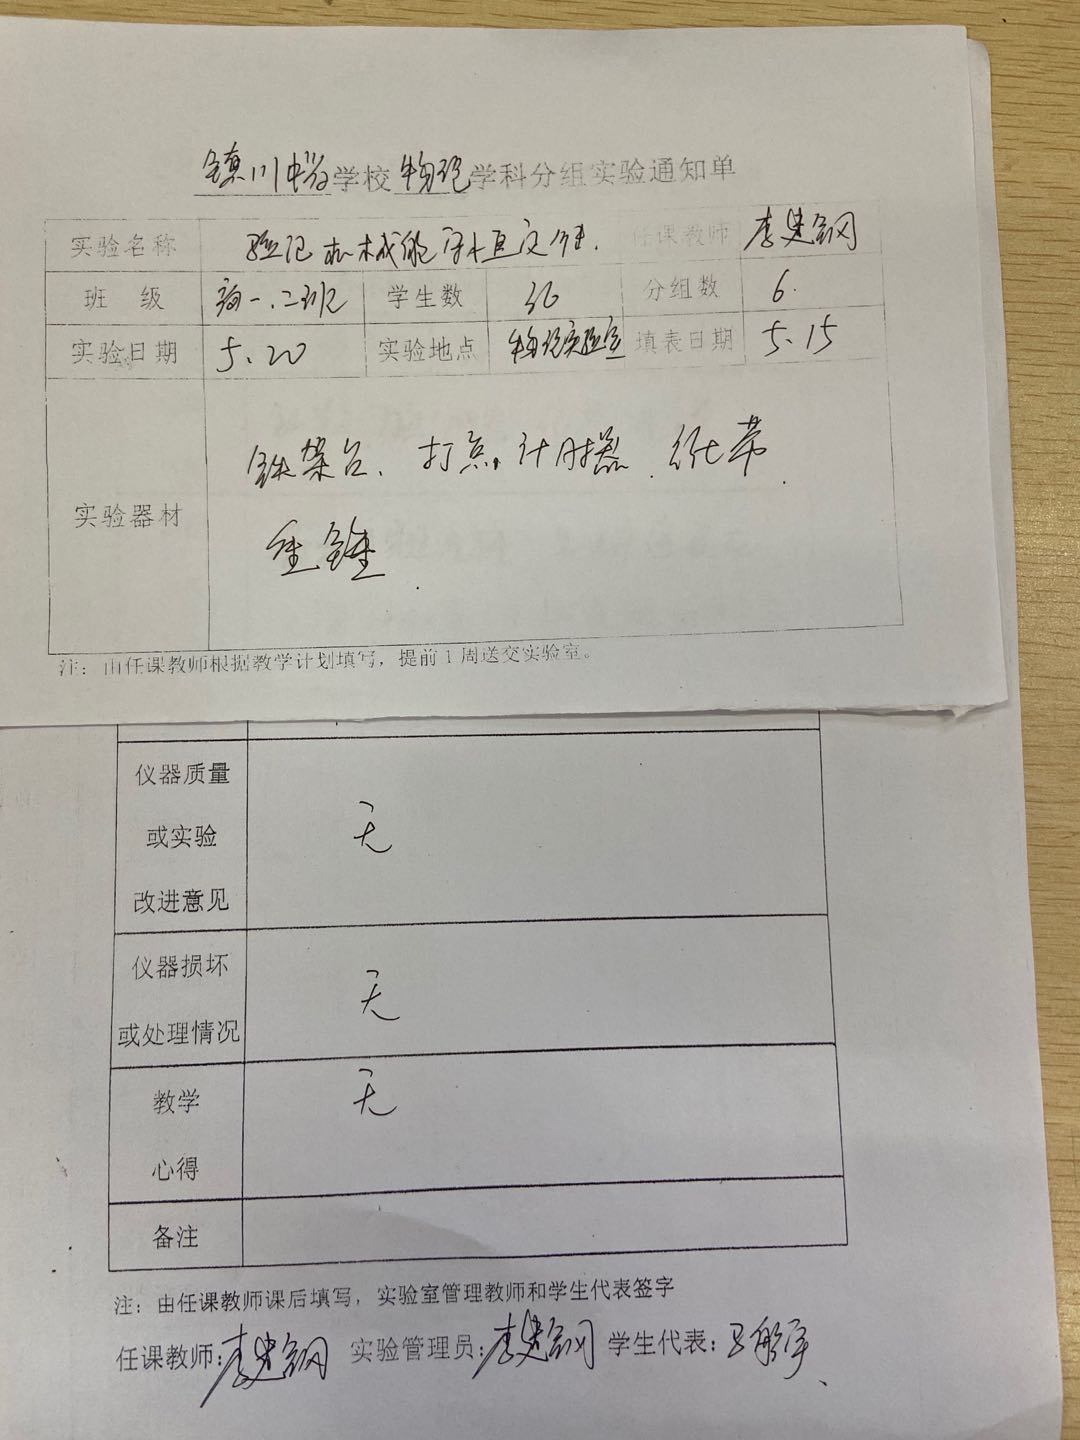 镇川中学学校物理学科分组实验通知单
实验名称 验证机械能守恒定律. 任课教师 李建钢
班 级 高一.二班 学生数 36 分组数 6.
实验日期 5.20 实验地点 物理实验室 填表日期 5.15
实验器材 铁架台、打点计时器、纸带、
重锤.
注：由任课教师根据教学计划填写，提前1周送交实验室。
仪器质量
或实验 无
改进意见
仪器损坏
无
或处理情况
教学 无
心得
备注
注：由任课教师课后填写，实验室管理教师和学生代表签字
任课教师：李建钢 实验管理员：李建钢 学生代表：